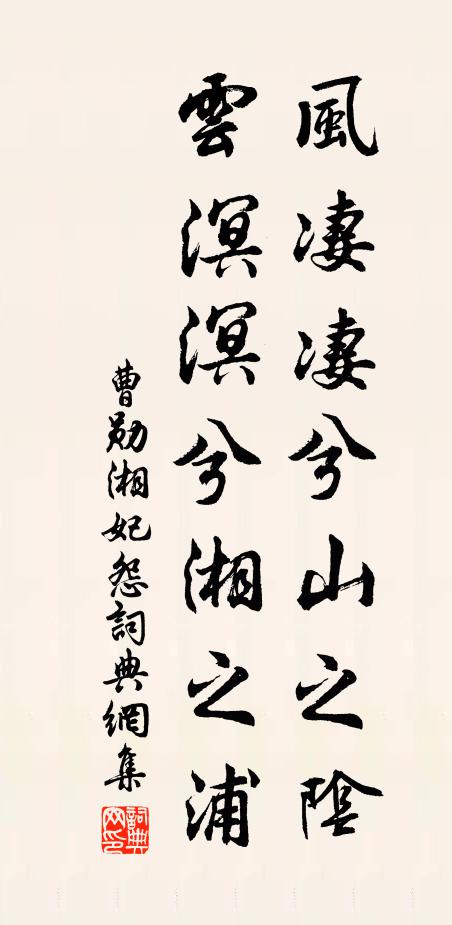 風淒淒兮山之陰
雲溟溟兮湘之浦
曹勛湘妃怨詞典網集
詞典網印